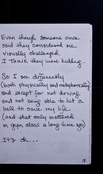 Even though someone once
said they considered me
visually challenged,
I think they were kidding.
So I see differently
(both physically and metaphorically)
and except for not driving
and not being able to hit a
ball to save my life
(and that only mattered
in gym class a long time ago)
It's ok...